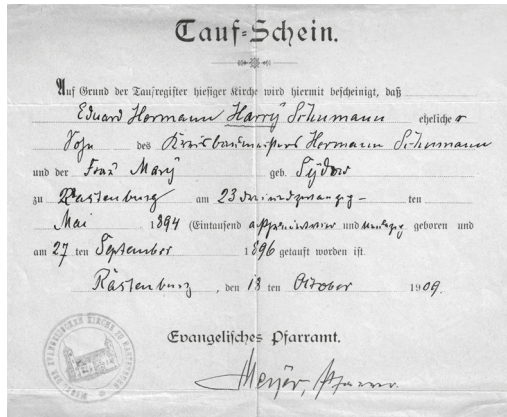 Tauf-Schein.
Auf Grund der Taufregister hiesiger Kirche wird hiermit bescheinigt, daß
Eduard Hermann Harry Schumann eheliche r
Sohn des Kreisbaumeisters Hermann Schumann
und der Frau Mary geb. Sydow
zu Rastenburg am 23 dreiundzwanzig- ten
Mai 1894 (Eintausend achthundertvier und neunzig geboren und
am 27 ten September 1896 getauft worden ist.
Rastenburg, den 18 ten October 1909.
Evangelisches Pfarramt.
Meyer, Pfarrer.